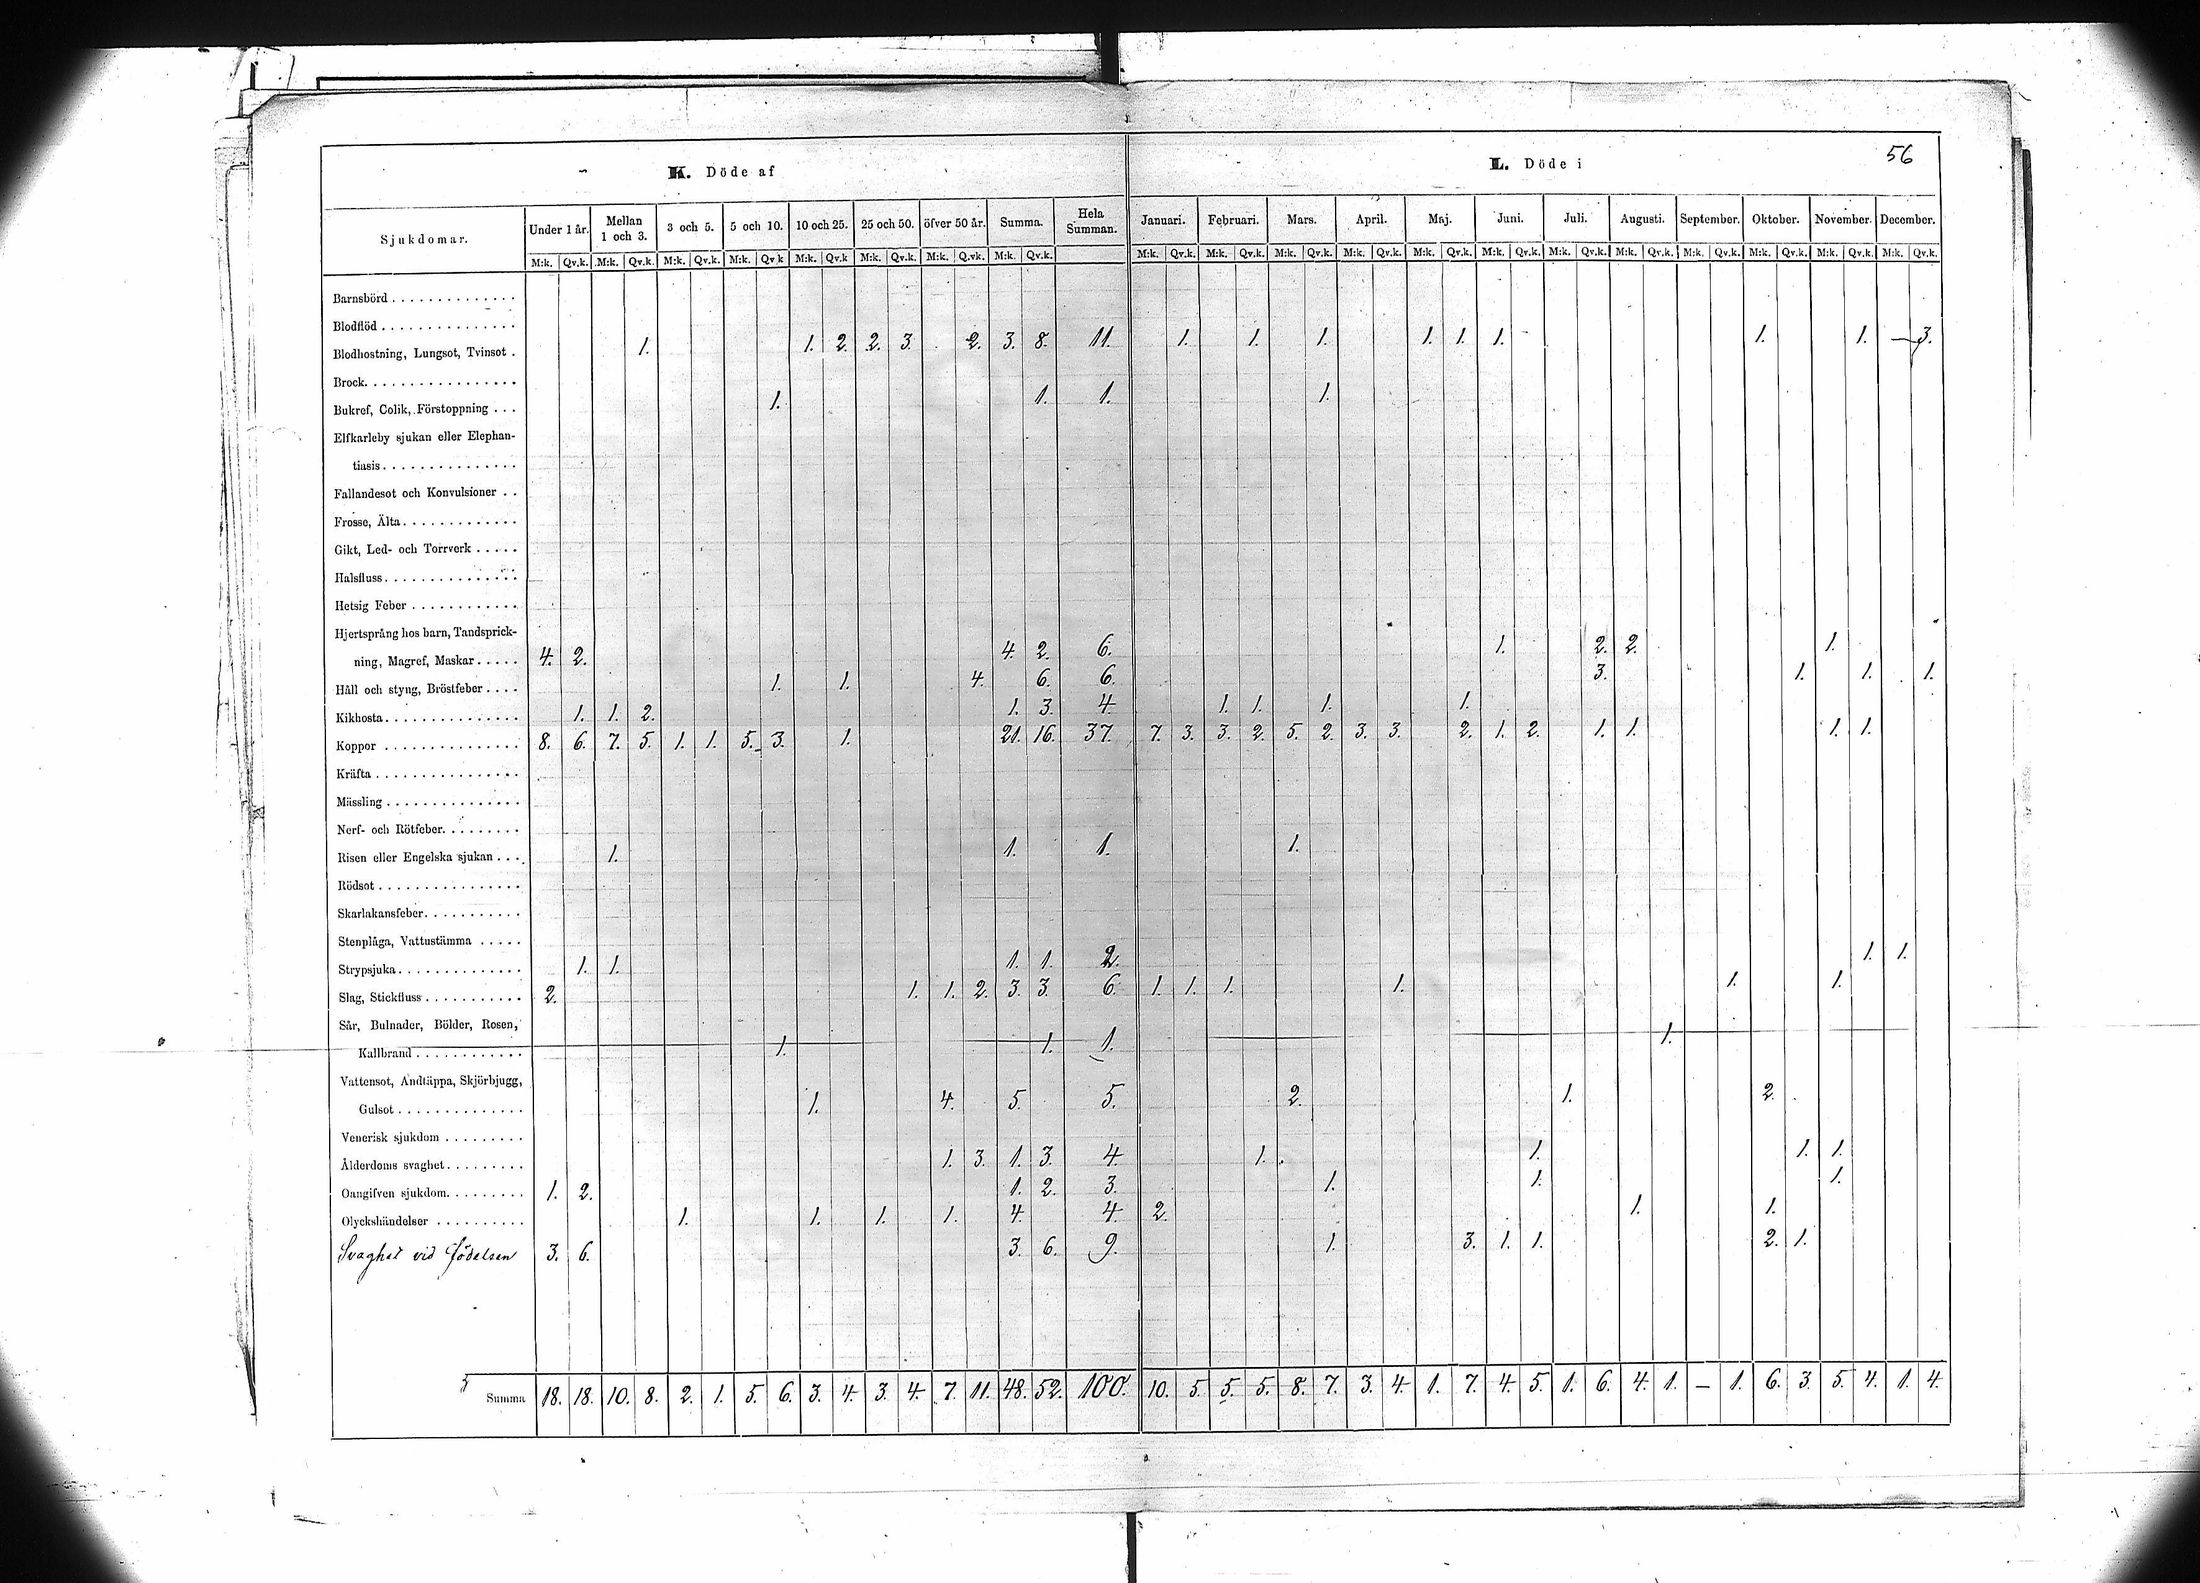 56
K. Döde af
L. Döde i
Sjukdomar. Under 1 år. Mellan 1 och 3. 3 och 5. 5 och 10. 10 och 25. 25 och 50. öfver 50 år. Summa. Hela Summan. Januari. Februari. Mars. April. Maj. Juni. Juli. Augusti. September. Oktober. November. December.
M:k. Qv.k. M:k. Qv.k. M:k. Qv.k. M:k. Qv.k M:k. Qv.k M:k. Qv.k. M:k. Q.vk. M:k. Qv.k. M:k. Qv.k. M:k. Qv.k. M:k. Qv.k. M:k. Qv.k. M:k. Qv.k. M:k. Qv.k. M:k. Qv.k. M:k. Qv.k. M:k. Qv.k. M:k. Qv.k. M:k. Qv.k. M:k. Qv.k.
Barnsbörd
Blodflöd
Blodhostning, Lungsot, Tvinsot . 1. 1. 2. 2. 3. 2. 3. 8. 11. 1. 1. 1. 1. 1. 1. 1. 1. — 3.
Brock
Bukref, Colik, Förstoppning . . . 1. 1. 1. 1.
Elfkarleby sjukan eller Elephan-
tiasis
Fallandesot och Konvulsioner . .
Frosse, Älta
Gikt, Led- och Torrverk
Halsfluss
Hetsig Feber
Hjertsprång hos barn, Tandsprick-
ning, Magref, Maskar 4. 2. 4. 2. 6. 1. 2. 2. 1.
Håll och styng, Bröstfeber 1. 1. 4. 6. 6. 3. 1. 1. 1.
Kikhosta 1. 1. 2. 1. 3. 4. 1. 1. 1. 1.
Koppor 8. 6. 7. 5. 1. 1. 5. 3. 1. 21. 16. 37. 7. 3. 3. 2. 5. 2. 3. 3. 2. 1. 2. 1. 1. 1. 1.
Kräfta
Mässling
Nerf- och Rötfeber
Risen eller Engelska sjukan . . . 1. 1. 1. 1.
Rödsot
Skarlakansfeber
Stenplåga, Vattustämma
Strypsjuka 1. 1. 1. 1. 2. 1. 1.
Slag, Stickfluss 2. 1. 1. 2. 3. 3. 6. 1. 1. 1. 1. 1. 1.
Sår, Bulnader, Bölder, Rosen,
Kallbrand 1. 1. 1. 1.
Vattensot, Andtäppa, Skjörbjugg,
Gulsot 1. 4. 5. 5. 2. 1. 2.
Venerisk sjukdom
Ålderdoms svaghet 1. 3. 1. 3. 4. 1. 1. 1. 1.
Oangifven sjukdom 1. 2. 1. 2. 3. 1. 1. 1.
Olyckshändelser 1. 1. 1. 1. 4. 4. 2. 1. 1.
Svaghet vid födelsen 3. 6. 3. 6. 9. 1. 3. 1. 1. 2. 1.
Summa 18. 18. 10. 8. 2. 1. 5. 6. 3. 4. 3. 4. 7. 11. 48. 52. 100. 10. 5. 5. 5. 8. 7. 3. 4. 1. 7. 4. 5. 1. 6. 4. 1. — 1. 6. 3. 5. 4. 1. 4.